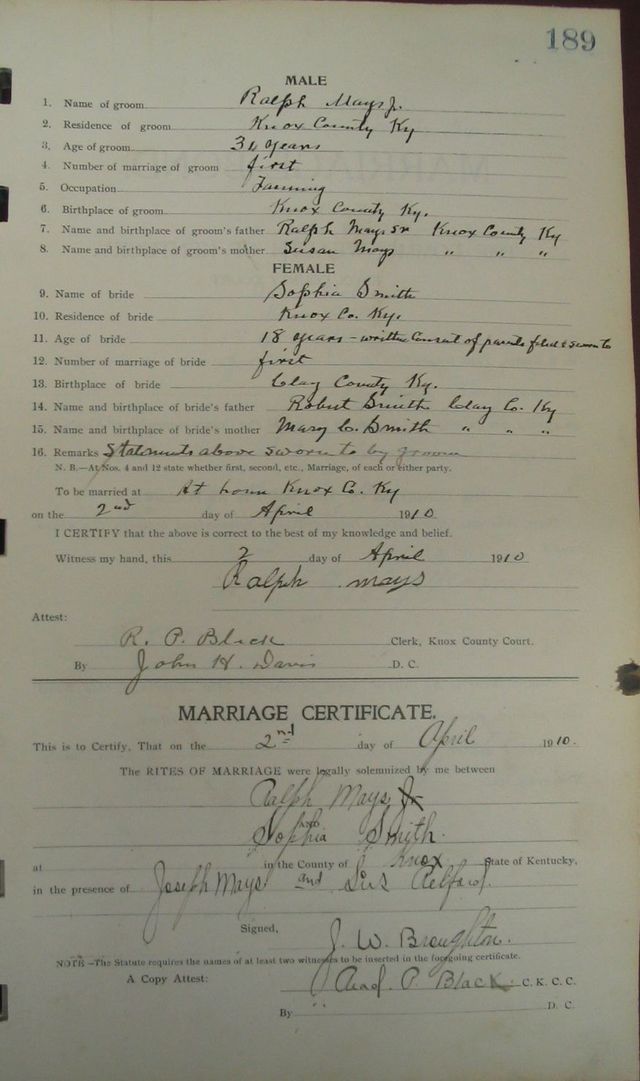 189
MALE
1. Name of groom Ralph Mays Jr.
2. Residence of groom Knox County Ky
3. Age of groom years
4. Number of marriage of groom first
5. Occupation Farming
6. Birthplace of groom Knox County Ky.
7. Name and birthplace of groom's father Ralph Mays Sr Knox County Ky
8. Name and birthplace of groom's mother Susan Mays " " "
FEMALE
9. Name of bride Sophia Smith
10. Residence of bride Knox Co. Ky.
11. Age of bride 18 years - written Consent of parents filed & sworn to
12. Number of marriage of bride first
13. Birthplace of bride Clay County Ky.
14. Name and birthplace of bride's father Robert Smith Clay Co. Ky
15. Name and birthplace of bride's mother Mary C. Smith " " "
16. Remarks Statements above sworn to by groom
N. B.—At Nos. 4 and 12 state whether first, second, etc., Marriage, of each or either party.
To be married at At home Knox Co. Ky
on the 2nd day of April 1910
I CERTIFY that the above is correct to the best of my knowledge and belief.
Witness my hand, this 2 day of April 1910
Ralph Mays
Attest:
R. P. Black Clerk, Knox County Court.
By John H. Davis D. C.
MARRIAGE CERTIFICATE.
This is to Certify, That on the 2nd day of April 1910.
The RITES OF MARRIAGE were legally solemnized by me between
Ralph Mays Jr
AND
Sophia Smith.
at in the County of Knox State of Kentucky,
in the presence of Joseph Mays and
Signed,
J. W. Broughton.
NOTE—The Statute requires the names of at least two witnesses to be inserted in the foregoing certificate.
A Copy Attest: P. Black C. K. C. C.
By D. C.